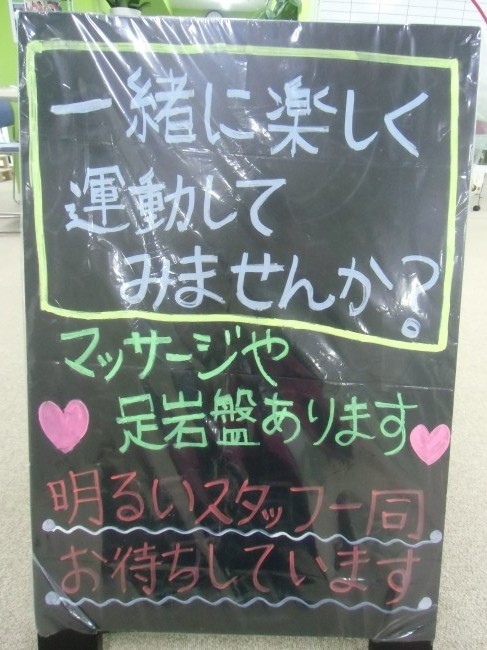 一緒に楽しく
運動して
みませんか?
マッサージや
足岩盤あります
明るいスタッフ一同
お待ちしています